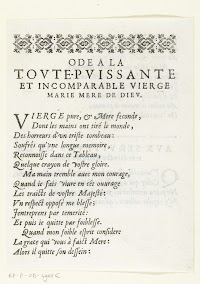 ODE A LA
TOVTE-PVISSANTE
ET INCOMPARABLE VIERGE
MARIE MERE DE DIEV.
VIERGE pure, & Mere feconde,
Dont les mains ont tiré le monde,
Des horreurs d'un triste tombeau:
Soufrés qu'une longue memoire,
Reconnoisse dans ce Tableau,
Quelque crayon de vostre gloire.
Ma main tremble avec mon courage,
Quand je fais vivre en cét ouvrage
Les traicts de vostre Majesté:
Un respect opposé me blesse;
J'entreprens par temerité:
Et puis je quitte par foiblesse.
Quand mon foible esprit considere
La grace qui vous à faict Mere:
Alors il quitte son dessein: